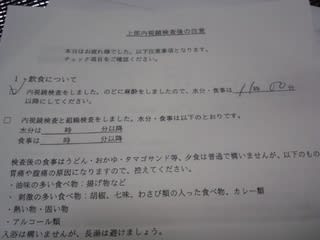 上部内視鏡検査後の注意
本日はお疲れ様でした。以下注意事項となります。
チェック項目をご確認ください。
1・飲食について
内視鏡検査をしました。のどに麻酔をしましたので、水分・食事は 11時 00分
以降にしてください。
□ 内視鏡検査と組織検査をしました。水分・食事は以下のとおりです。
水分は 時 分以降
食事は 時 分以降
検査後の食事はうどん・おかゆ・タマゴサンド等、夕食は普通で構いませんが、以下のもの
胃痛や腹痛の原因になりますので、控えてください。
・油味の多い食べ物：揚げ物など
・刺激の多い食べ物：胡椒、七味、わさび類の入った食べ物、カレー類
・熱い物・固い物
・アルコール類
入浴は構いませんが、長湯は避けましょう。